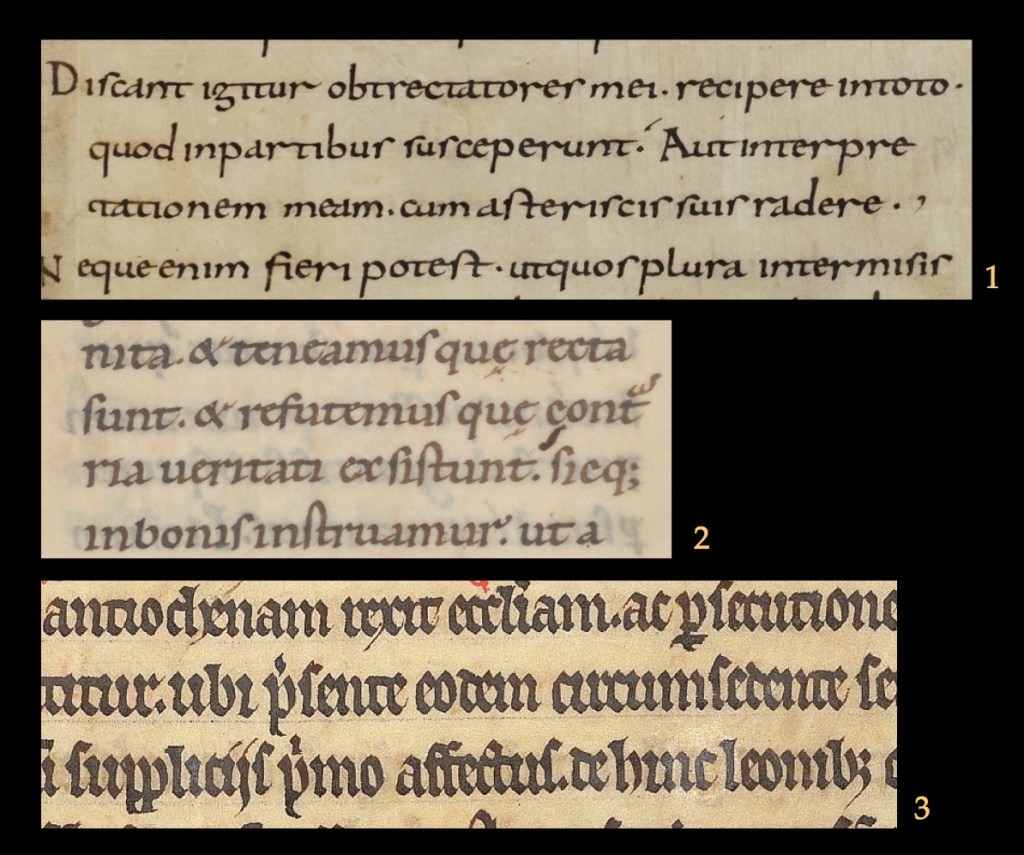 Discant igitur obtrectatores mei. recipere intoto.
quod inpartibus susceperunt. Aut interpre
tationem meam. cum asteriscis suis radere.,
Neque enim fieri potest. ut quos plura intermisis
1
nita. & teneamus quę recta
sunt. & refutemus quę cont
ria ueritati exsistunt. sicq;
inbonis instruamur. ut a
2
antiochenam rexit eccl̄iam. ac ꝑsecutione
titur. ubi p̍sente eodem circumsedente se
i suppliciis p̍mo affectus. dehinc leonibꝫ
3